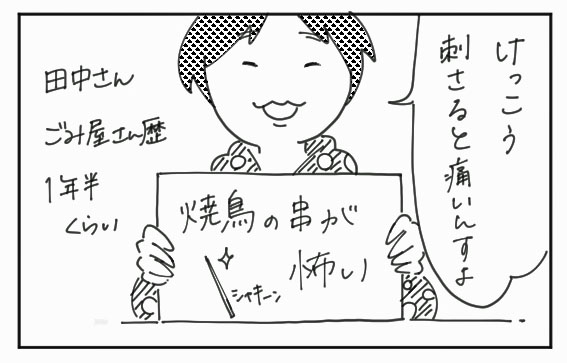 けっこう
刺さると痛いんすよ
田中さん
ごみ屋さん歴
1年半
くらい
焼鳥の串が
怖い
シャキーン